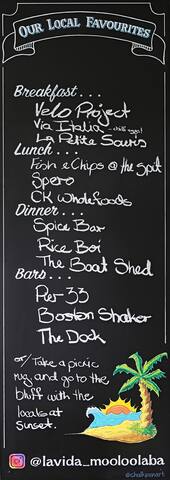 OUR LOCAL FAVOURITES
Breakfast...
Velo Project
Via Italia - chilli eggs!
La Petite Souris
Lunch...
Fish & Chips @ the Spit
Spero
CK Wholefoods
Dinner...
Spice Bar
Rice Boi
The Boat Shed
Bars...
Pier 33
Boston Shaker
The Dock
or/ Take a picnic
rug and go to the
bluff with the
locals at
sunset.
@chalkanart
@lavida_mooloolaba